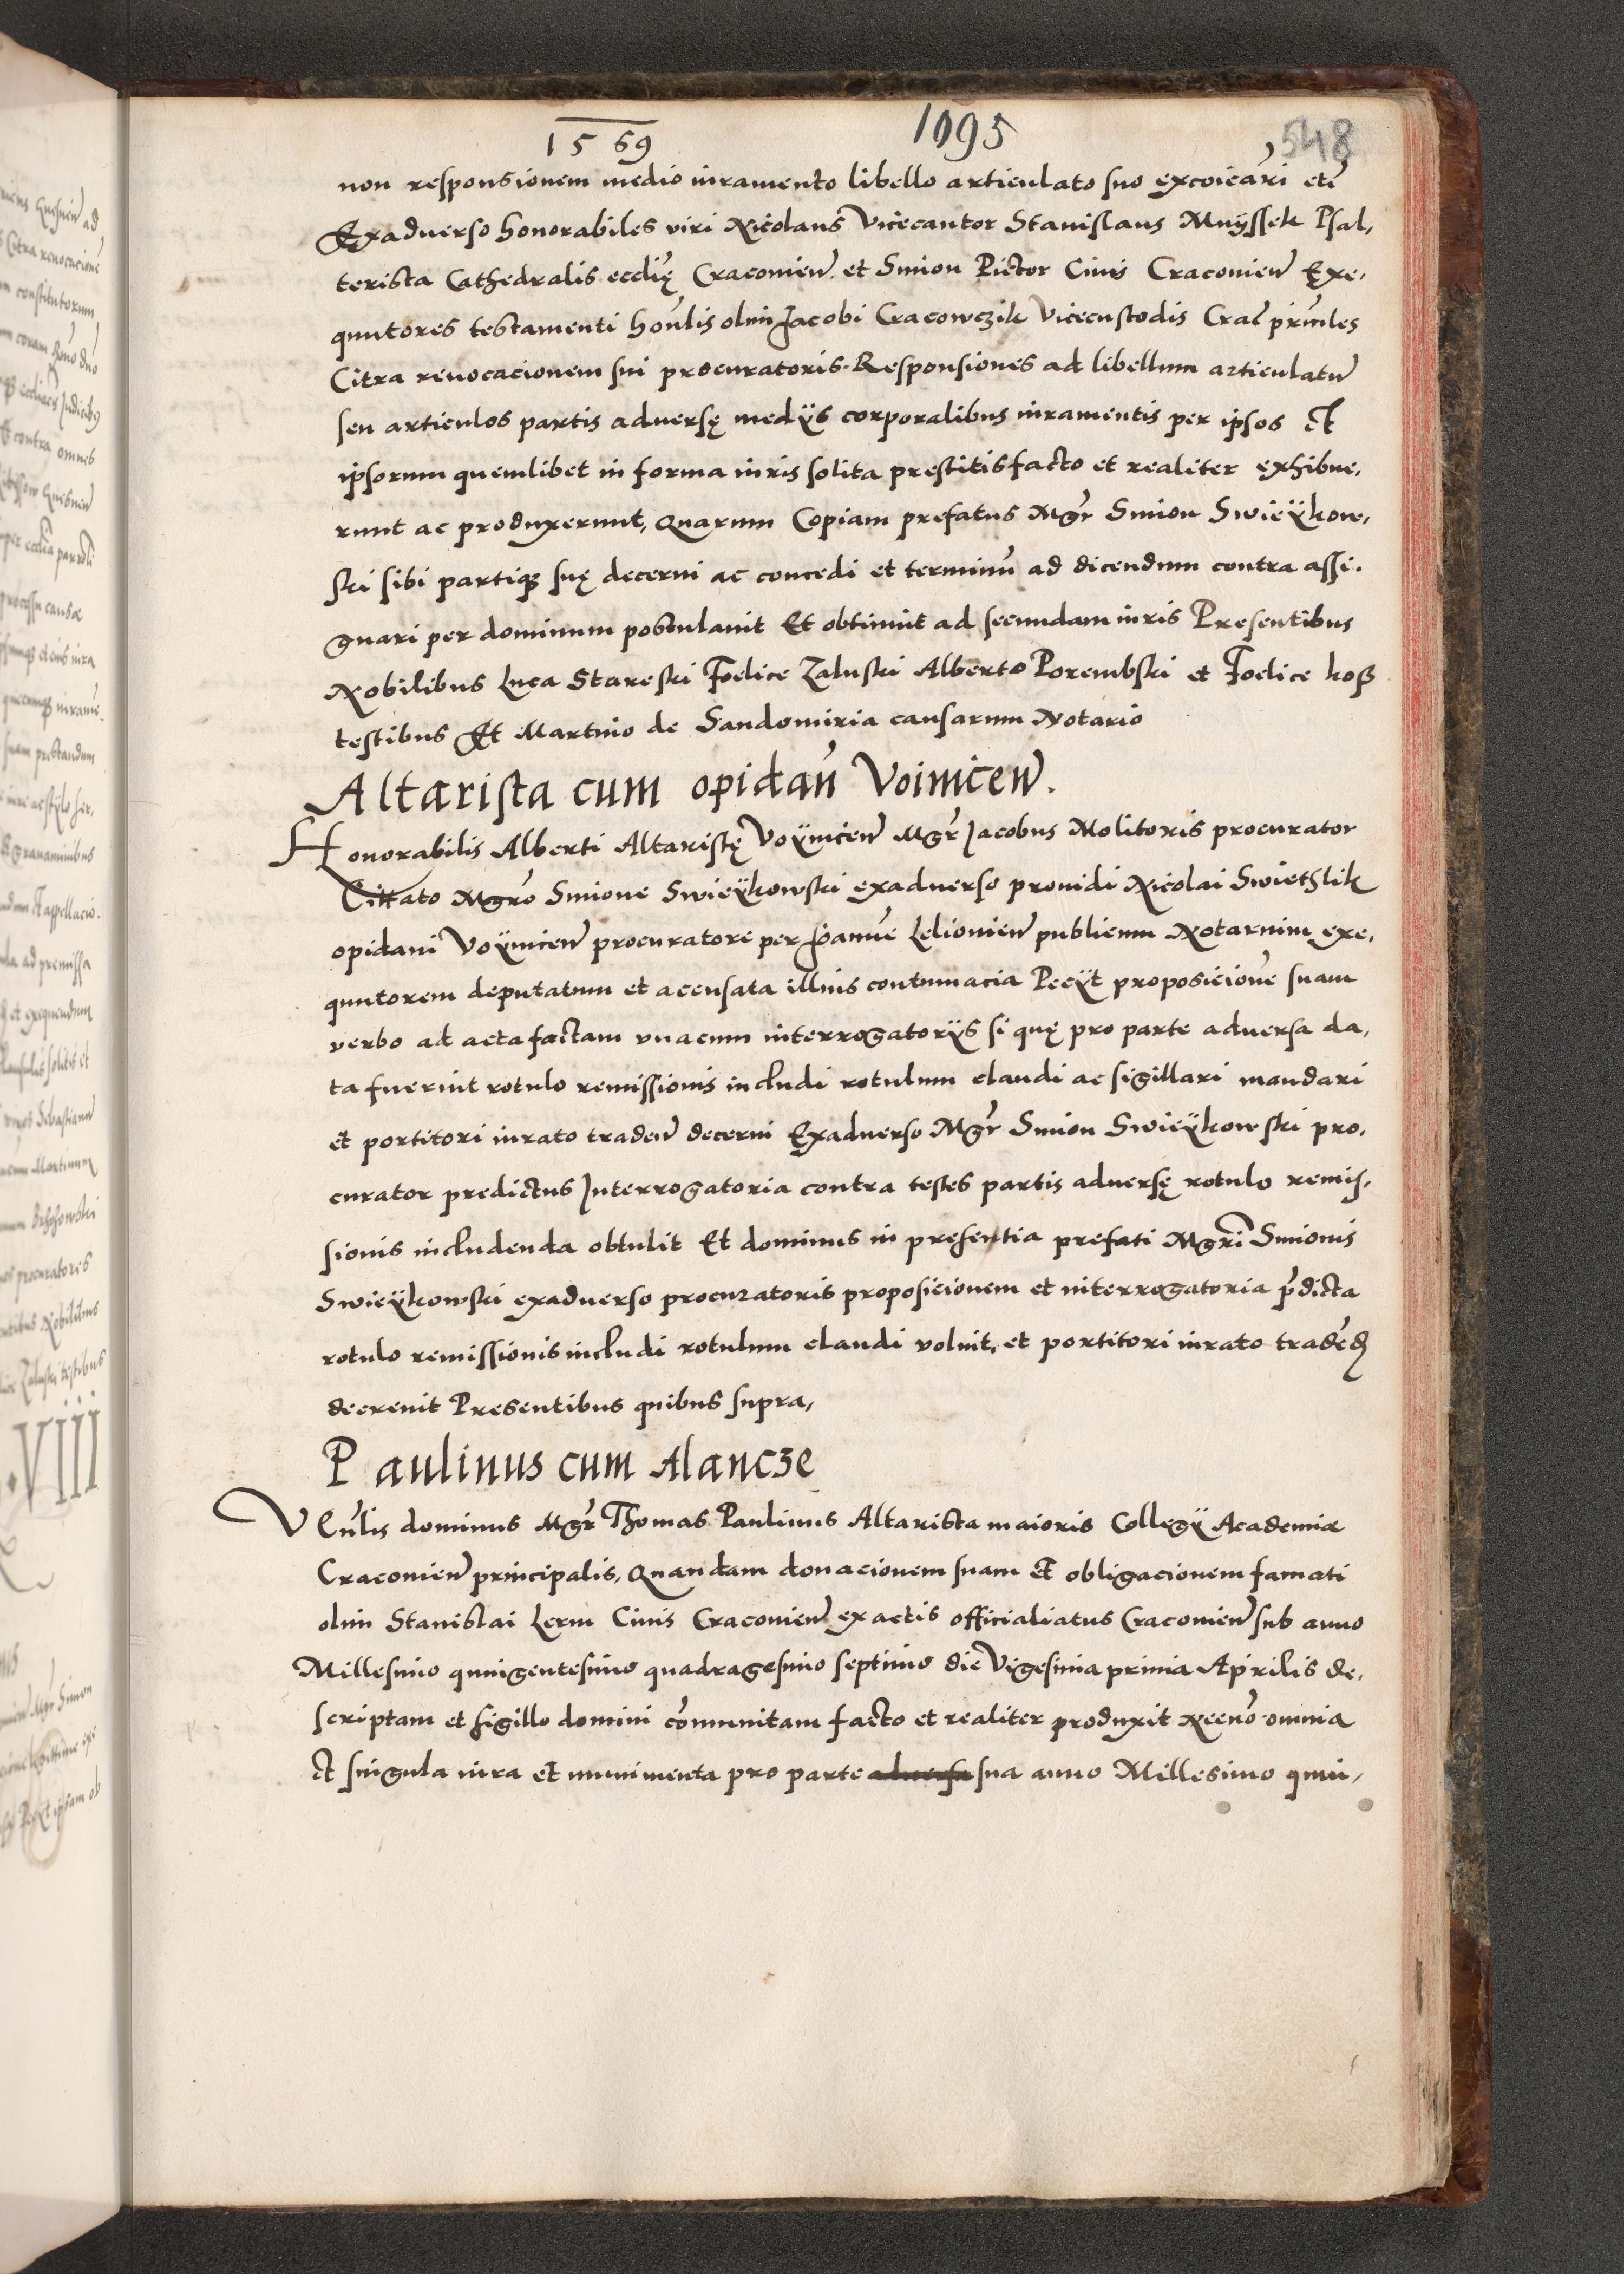 1569 1095 548
non responsionem medio iuramento libello articulato suo excōicari etc̄
Exaduerso honorabiles viri Nicolaus Vicecantor Stanislaus Muÿssek Psal,
terista Cathedralis ecclię Cracouien̄ et Simon Pictor Ciuis Cracouien̄ Exe,
quutores testamenti hon̄lis olim Jacobi Cracowczik Vicecustodis Crac̄ prin̄les
Citra reuocacionem sui procuratoris. Responsiones ad libellum articulatū
seu articulos partis aduersę medÿs corporalibus iuramentis per ipsos Et
ipsorum quemlibet in forma iuris solita prestitis facto et realiter exhibue,
runt ac produxerunt, quarum Copiam prefatus Mgr̄ Simon Swieÿkow,
ski sibi partiq₃ suę decerni ac concedi et terminū ad dicendum contra assi.
gnari per dominum postulauit Et obtinuit ad secundam iuris Presentibus
Nobilibus Luca Stareski Foelice Zaluski Alberto Porembski et Foelice koß
testibus Et Martino de Sandomiria causarum Notario
Altarista cum opidan̄ Voinicen̄.
Honorabilis Alberti Altaristę Voÿnicen̄ Mgr̄ Jacobus Molitoris procurator
Cittato Mgrō Simone Swieÿkowski exaduerso prouidi Nicolai Swiethlik
opidani Voÿnicen̄ procuratore per Joannē Leliouien̄ publicum Notarium exe,
quutorem deputatum et accusata illius contumacia Pecÿt proposicionē suam
verbo ad acta factam vnacum interrogatorÿs si quę pro parte aduersa da,
ta fuerint rotulo remissionis includi rotulum claudi ac sigillari mandari
et portitori iurato traden̄ decerni Exaduerso Mgr̄ Simon Swieÿkowski pro,
curator predictus Interrogatoria contra testes partis aduersę rotulo remis,
sionis includenda obtulit Et dominus in presentia prefati Mgrī Simonis
Swieÿkowski exaduerso procuratoris proposicionem et interrogatoria p̄dicta
rotulo remissionis includi rotulum claudi voluit, et portitori iurato tradēd
decreuit Presentibus quibus supra,
Paulinus cum Alancze
Ven̄lis dominus Mgr̄ Thomas Paulinus Altarista maioris Collegÿ Academiæ
Cracouien̄ principalis, quandam donacionem suam et obligacionem famati
olim Stanislai Lerm Ciuis Cracouien̄ ex actis officialiatus Cracouien̄ sub anno
Millesimo quingentesimo quadragesimo septimo die Vigesima prima Aprilis de,
scriptam et sigillo domini cōmunitam facto et realiter produxit Necnō omnia
et singula iura et munimenta pro parte aduersa sua anno Millesimo quin,